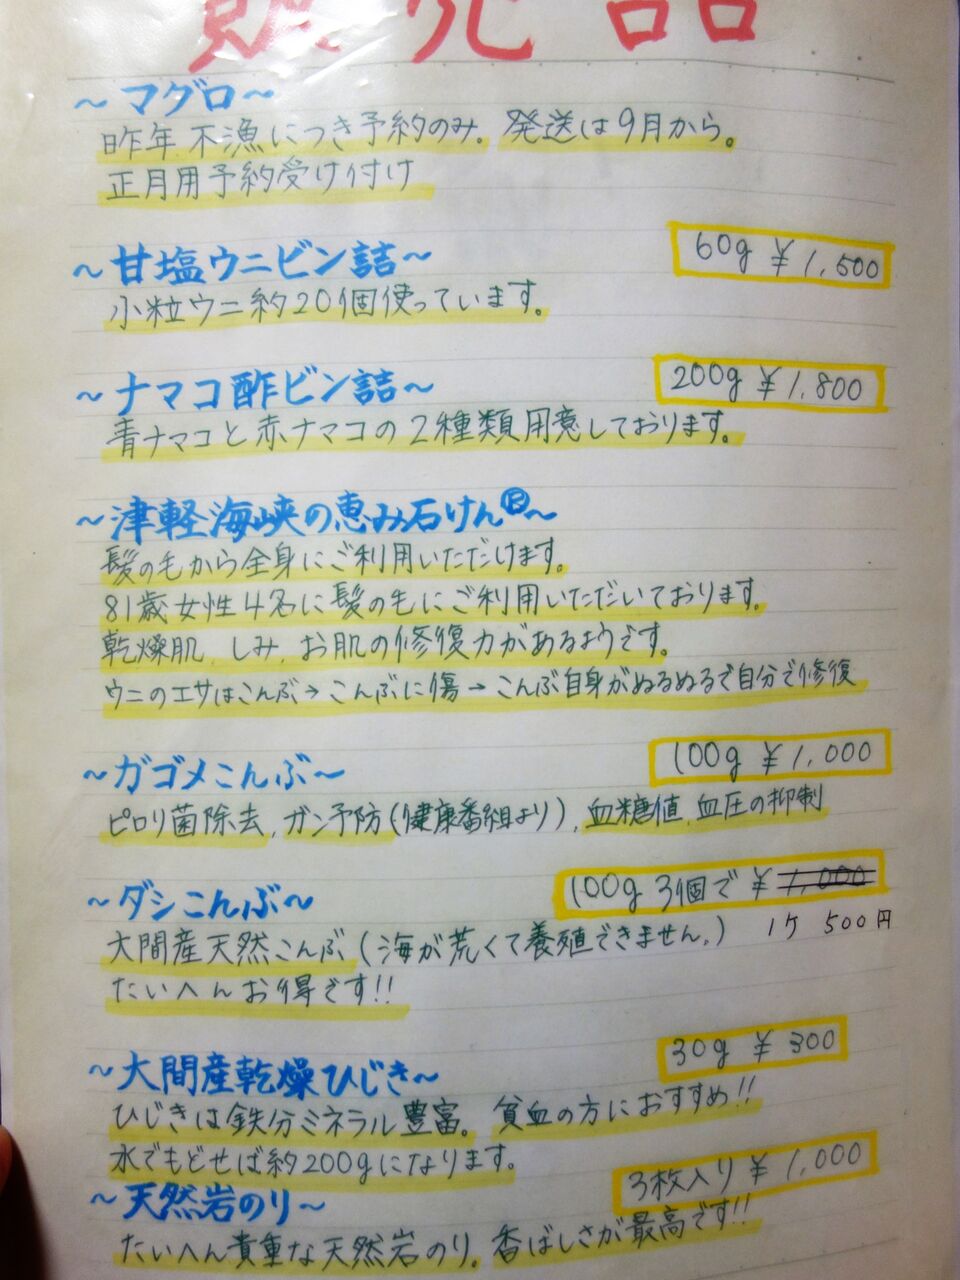 販売品
～マグロ～
昨年不漁につき予約のみ。発送は9月から。
正月用予約受け付け
～甘塩ウニビン詰～ 60g ¥1,500
小粒ウニ約20個使っています。
～ナマコ酢ビン詰～ 200g ¥1,800
青ナマコと赤ナマコの2種類用意しております。
～津軽海峡の恵み石けん®～
髪の毛から全身にご利用いただけます。
81歳女性4名に髪の毛にご利用いただいております。
乾燥肌、しみ、お肌の修復力があるようです。
ウニのエサはこんぶ→こんぶに傷→こんぶ自身がぬるぬるで自分で修復
～ガゴメこんぶ～ 100g ¥1,000
ピロリ菌除去、ガン予防(健康番組より)、血糖値、血圧の抑制
～ダシこんぶ～ 100g 3個で ¥1,000
大間産天然こんぶ(海が荒くて養殖できません。) 1ケ 500円
たいへんお得です!!
～大間産乾燥ひじき～ 30g ¥300
ひじきは鉄分ミネラル豊富。貧血の方におすすめ!!
水でもどせば約200gになります。
～天然岩のり～ 3枚入り ¥1,000
たいへん貴重な天然岩のり。香ばしさが最高です!!